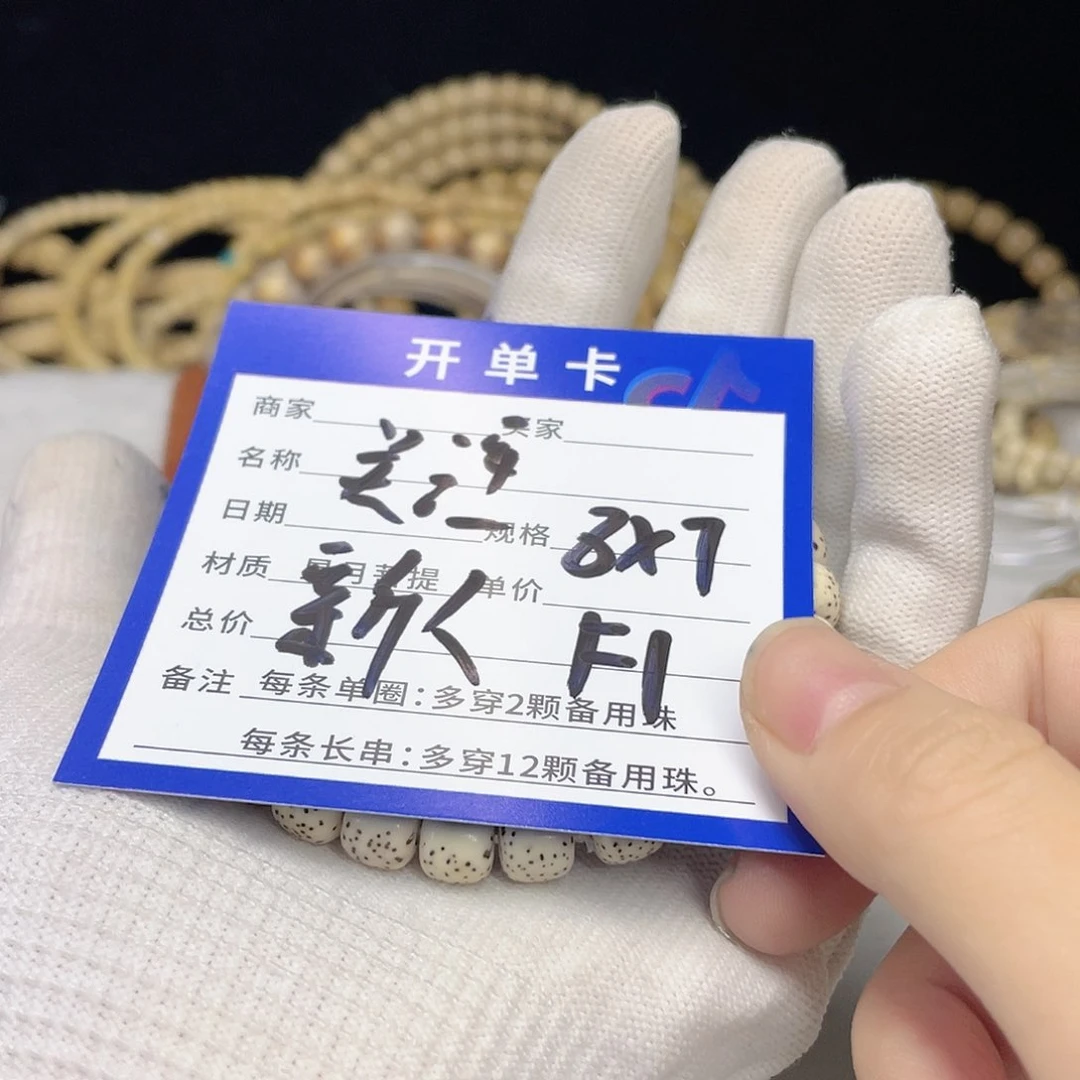 开单卡
商家 买家
名称
日期 规格 8x7
材质 星月菩提 单价
新人 F1
总价
备注 每条单圈:多穿2颗备用珠
每条长串:多穿12颗备用珠。